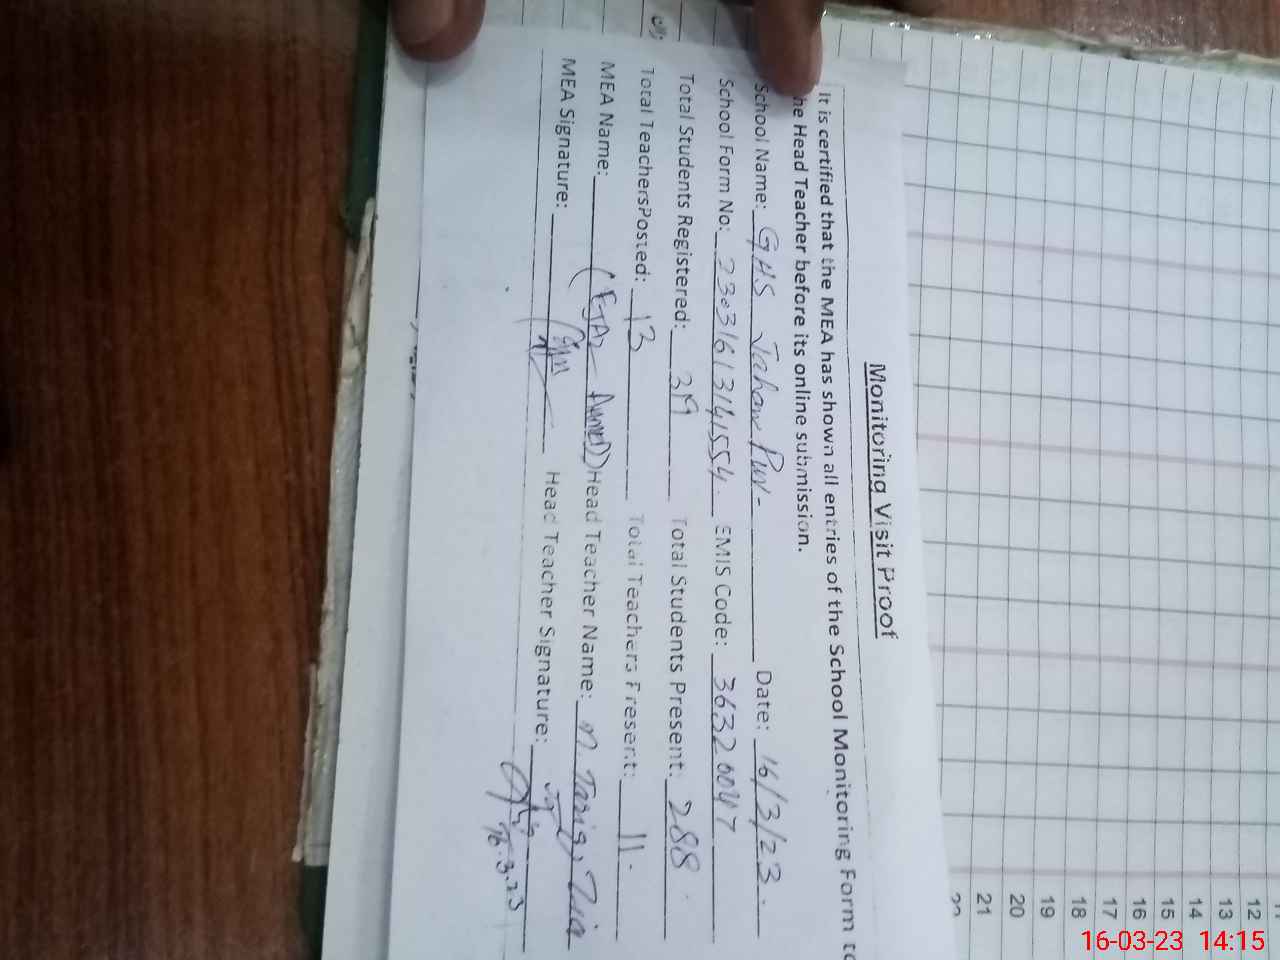 Monitoring Visit Proof
It is certified that the MEA has shown all entries of the School Monitoring Form to
the Head Teacher before its online submission.
School Name: GHS Jahan Pur - Date: 16/3/23 -
School Form No: EMIS Code: 36320047
Total Students Registered: 319 Total Students Present: 288
Total TeachersPosted: 13 Total Teachers Present: 11.
MEA Name: (EJAZ AHMED) Head Teacher Name: M. Tariq, Zia
MEA Signature: Head Teacher Signature:
16.3.23
12
13
14
15
16
17
18
19
20
21
22
16-03-23 14:15